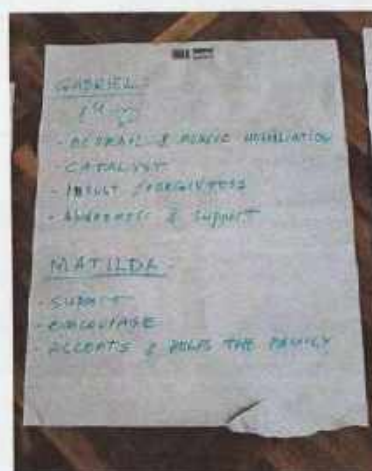 GABRIEL:
- BETRAYAL & PUBLIC HUMILIATION
- CATALYST
- INSULT / FORGIVENESS
- AWARENESS & SUPPORT
MATILDA:
- SUPPORT
- ENCOURAGE
- ACCEPTS & HELPS THE FAMILY